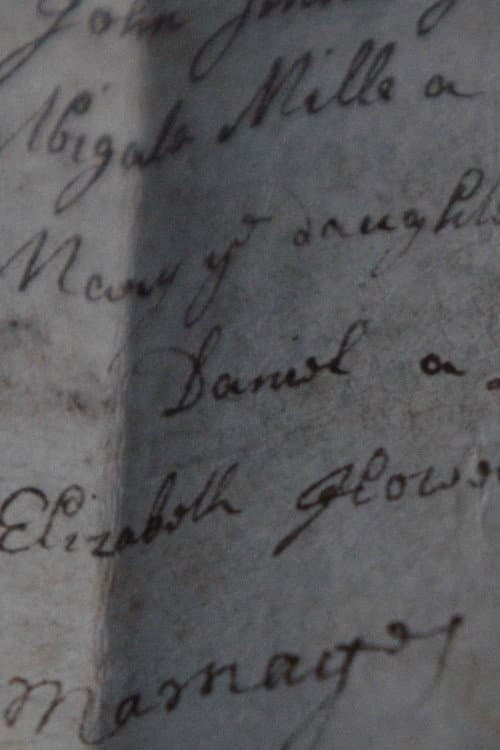 John
Abigale Mille a
Mary ye daughte
Daniel a
Elizabeth Glower
Marriages